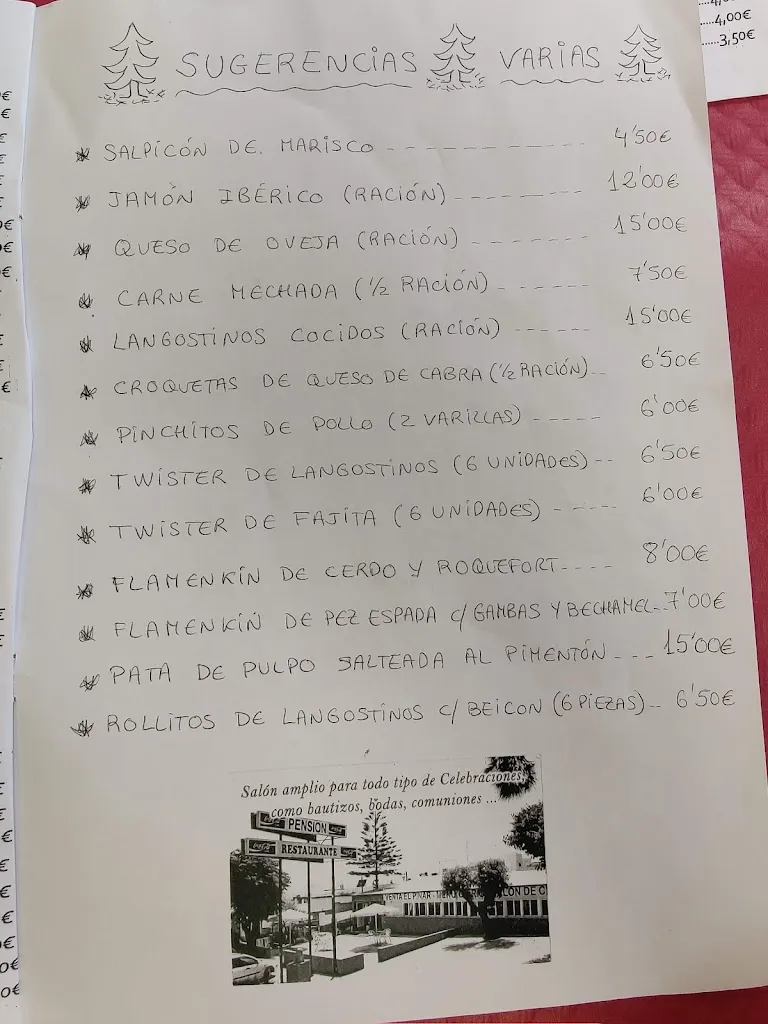 SUGERENCIAS VARIAS
SALPICÓN DE. MARISCO ------------ 4'50€
JAMÓN IBÉRICO (RACIÓN) --------- 12'00€
QUESO DE OVEJA (RACIÓN) -------- 15'00€
CARNE MECHADA (1/2 RACIÓN) ------ 7'50€
LANGOSTINOS COCIDOS (RACIÓN) ----- 15'00€
CROQUETAS DE QUESO DE CABRA (1/2 RACIÓN)-- 6'50€
PINCHITOS DE POLLO (2 VARILLAS) ----- 6'00€
TWISTER DE LANGOSTINOS (6 UNIDADES)-- 6'50€
TWISTER DE FAJITA (6 UNIDADES) ----- 6'00€
FLAMENKÍN DE CERDO Y ROQUEFORT---- 8'00€
FLAMENKÍN DE PEZ ESPADA C/ GAMBAS Y BECHAMEL--7'00€
PATA DE PULPO SALTEADA AL PIMENTÓN --- 15'00€
ROLLITOS DE LANGOSTINOS C/ BEICON (6 PIEZAS)-- 6'50€
Salón amplio para todo tipo de Celebraciones,
como bautizos, bodas, comuniones ...
PENSION
RESTAURANTE
VENTA EL PINAR
4,00€
3,50€